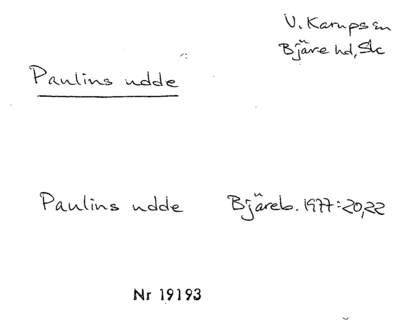 V. Karups sn
Bjäre hd, Sk
Paulins udde
Paulins udde Bjäreb. 1977:20,22
Nr 19193